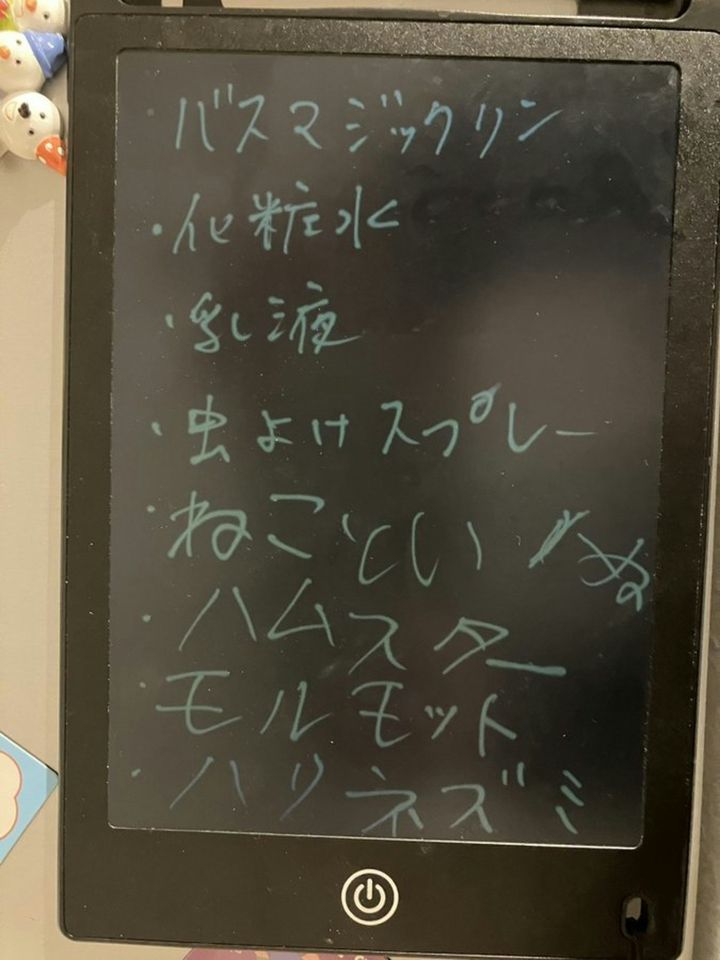 ・バスマジックリン
・化粧水
・乳液
・虫よけスプレー
・ねこといぬ
・ハムスター
・モルモット
・ハリネズミ